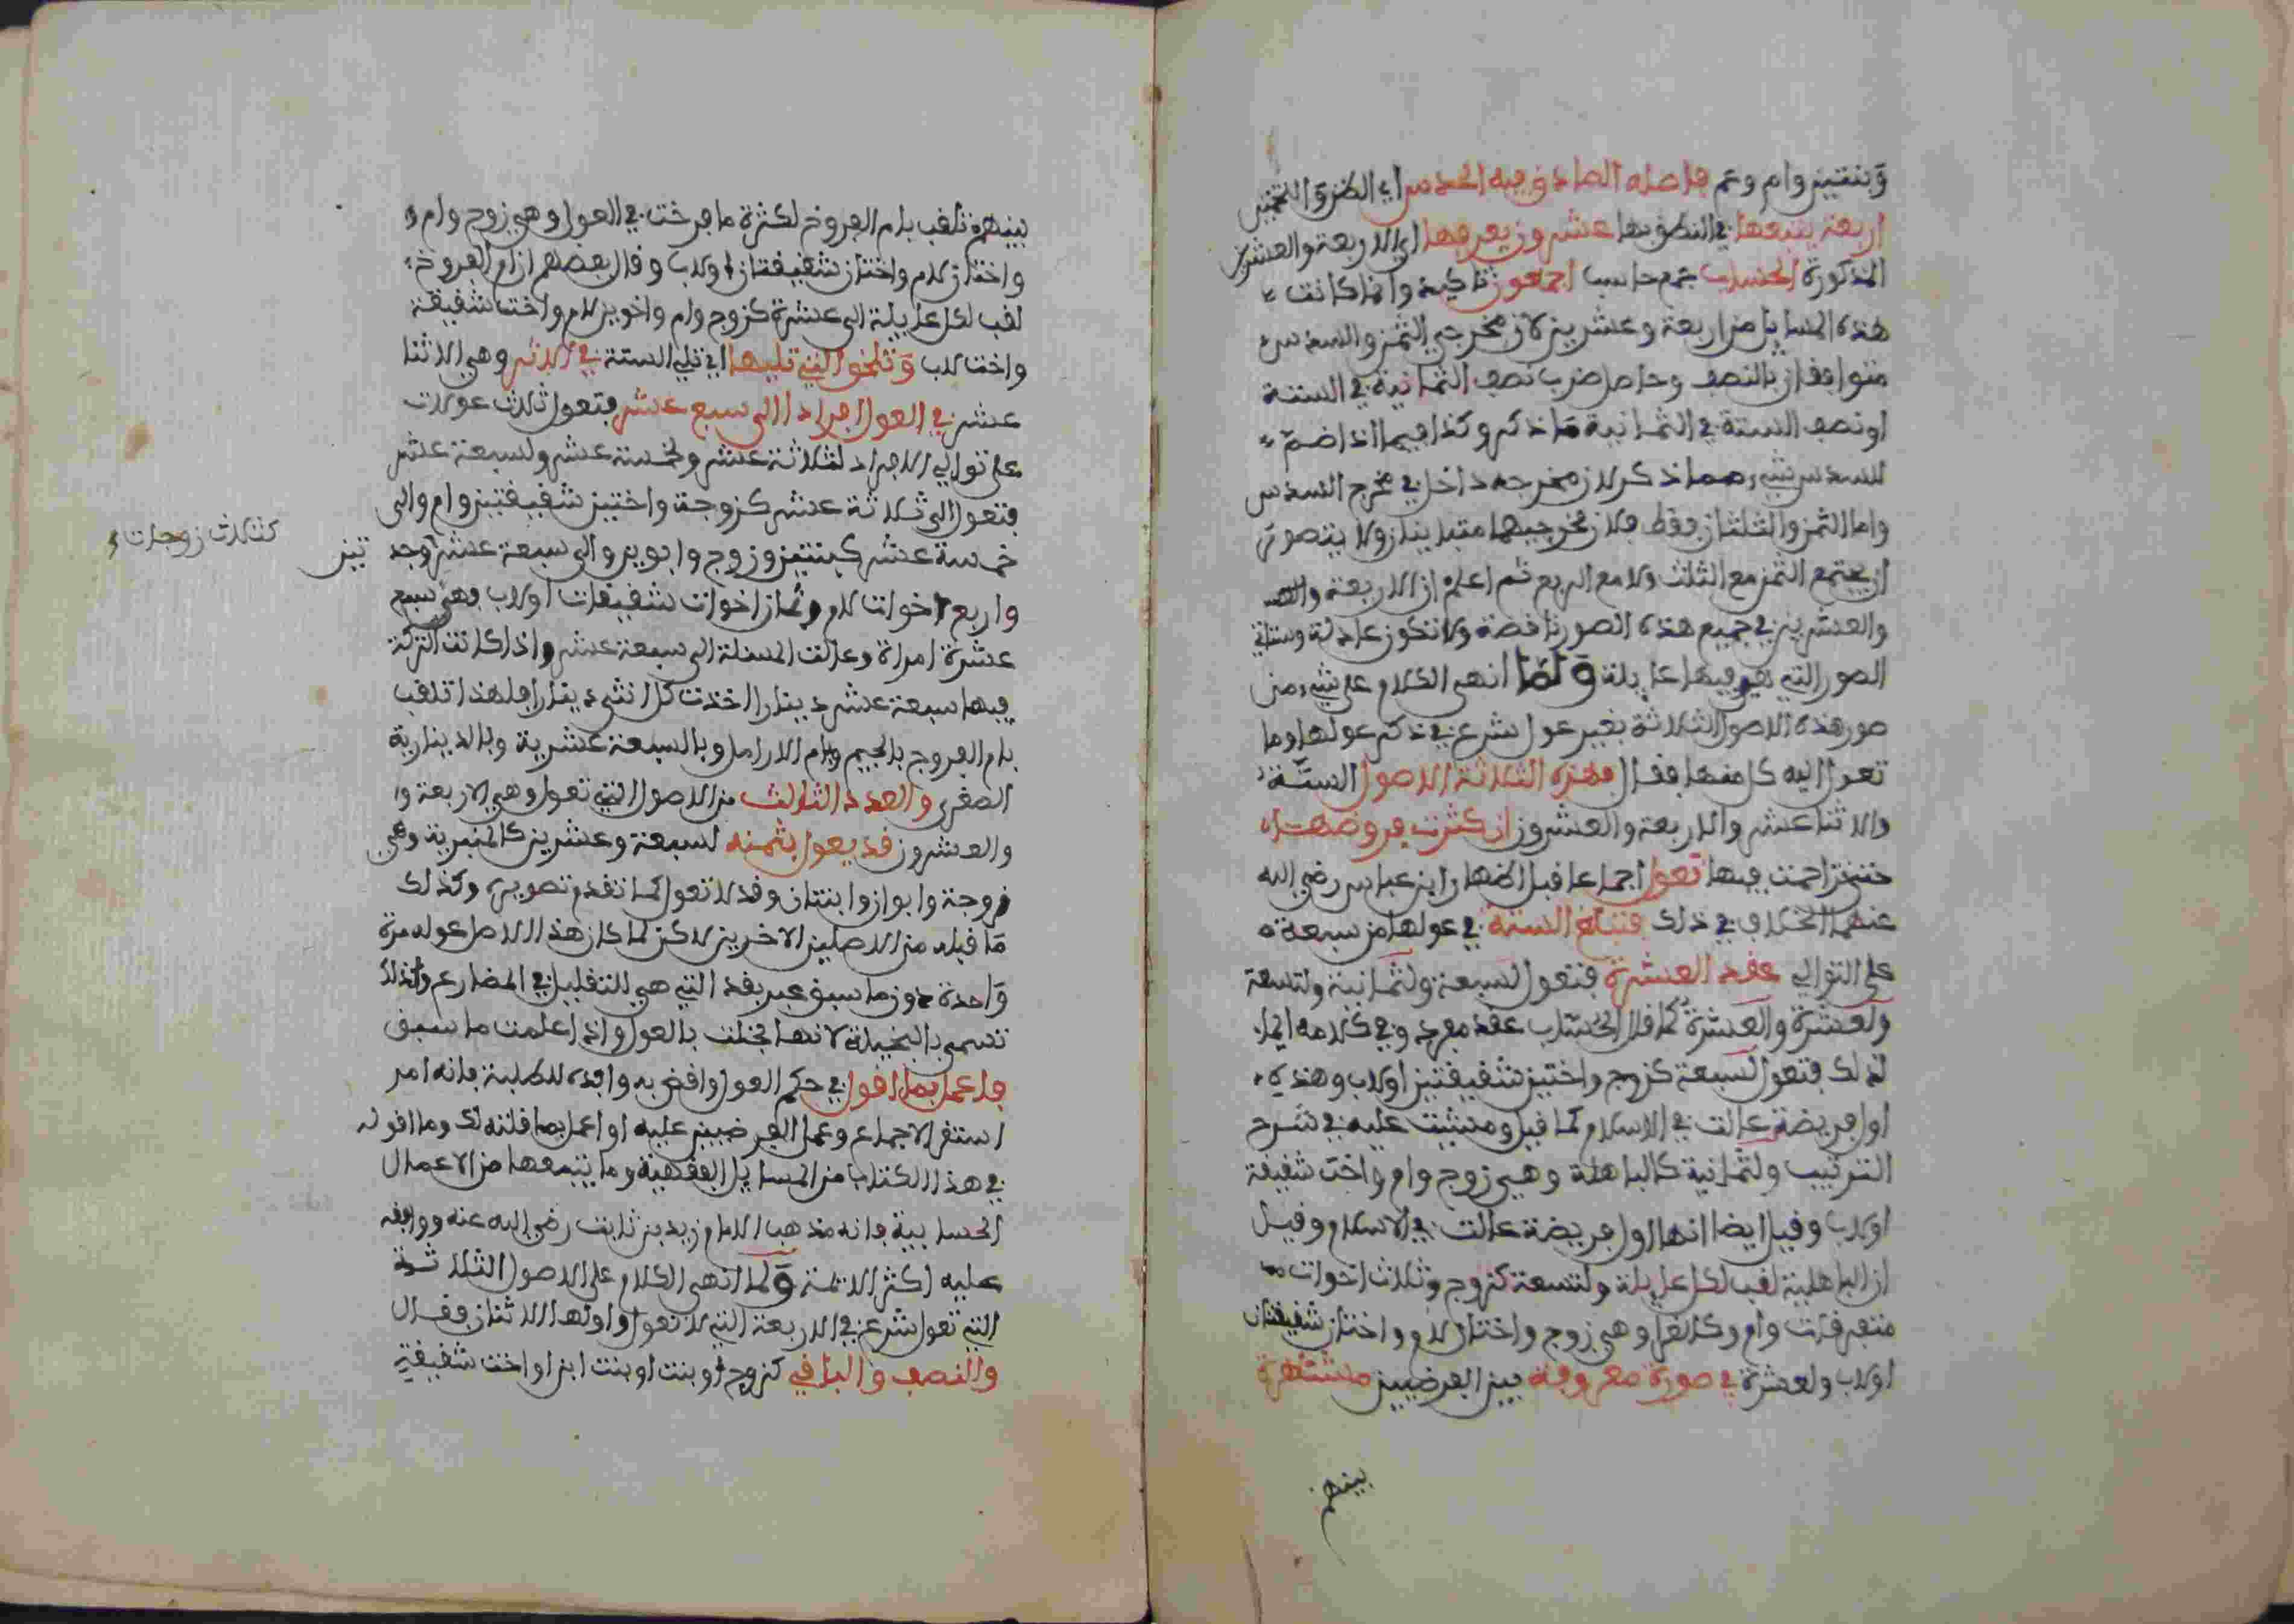 وبنتين وام وعم فاصله الصادق فيه الحدس اي الظن والتخمين
اربعة يتبعها في النطق بها عشرون يعرفها اي الاربعة والعشرين
المذكورة الحساب جمع حاسب اجمعون تاكيد وانما كانت
هذه المسايل من اربعة وعشرين لان مخرجي الثمن والسدس
متوافقان بالنصف وحاصل ضرب نصف الثمانية في الستة
او نصف الستة في الثمانية ما ذكر وكذا فيما اذا ضم
للسدس شيء مما ذكر لان مخرجه داخل في مخرج السدس
واما الثمن والثلثان فقط فلان مخرجيهما متباينان ولا يتصور
ان يجتمع الثمن مع الثلث ولا مع الربع ثم اعلم ان الاربعة
والعشرين في جميع هذه الصور ناقصة ولا تكون عادلة وستاتي
الصور التي هي فيها عايلة ولما انهى الكلام على شيء من
صور هذه الاصول الثلاثة بغير عول شرع في ذكر عولها وما
تعول اليه كل منها فقال فهذه الثلاثة الاصول الستة
والاثنا عشر والاربعة والعشرون ان كثرت فروضها
حتى تزاحمت فيها تعول اجماعا قبل اظهار ابن عباس رضي الله
عنهما الخلاف في ذلك فتبلغ الستة في عولها من سبعة
على التوالي عقد العشرة فتعول لسبعة ولثمانية ولتسعة
ولعشرة والعشرة كما قال الحساب عقد مفرد وفي كلامه ايماء
لذلك فتعول لسبعة كزوج واختين شقيقتين او لاب وهذه
اول فريضة عالت في الاسلام كما قيل ومشيت عليه في شرح
الترتيب ولثمانية كالمباهلة وهي زوج وام واخت شقيقة
او لاب وقيل ايضا انها اول فريضة عالت في الاسلام وقيل
ان المباهلة لقب لكل عايلة ولتسعة كزوج وثلاث اخوات
متفرقات وام وكالغرا وهي زوج واختان لام واختان شقيقتان
او لاب ولعشرة في صورة معروفة بين الفرضيين مشتهرة
بينهم
بينهم تلقب بام الفروخ لكثرة ما فرخت في العول وهي زوج وام و
واختان لام واختان شقيقتان او لاب وقال بعضهم ان ام الفروخ
لقب لكل عايلة الى عشرة كزوج وام واخوين لام واخت شقيقة
واخت لاب وتلحق التي تليها اي تلي الستة في الاثر وهي الاثنا
عشر في العول افرادا الى سبع عشر فتعول ثلاث عولات
على توالي الافراد لثلاثة عشر ولخمسة عشر ولسبعة عشر
فتعول الى ثلاثة عشر كزوجة واختين شقيقتين وام والى
خمسة عشر كبنتين وزوج وابوين والى سبعة عشر وجد تين
كثلاث زوجات و
واربع اخوات لام وثمان اخوات شقيقات او لاب فهي سبع
عشرة امراة وعالت المسئلة الى سبعة عشر واذا كانت التركة
فيها سبعة عشر دينارا اخذت كل انثى دينارا فلهذا تلقب
بام الفروج بالجيم وبام الارامل وبالسبعة عشرية وبالدينارية
الصغرى والعدد الثالث من الاصول التي تعول وهي الاربعة وا
والعشرون قد يعول بثمنه لسبعة وعشرين كالمنبرية وهي
زوجة وابوان وابنتان وقد لا تعول كما تقدم تصويره وكذلك
ما قبله من الاصلين الاخرين لاكن لما كان هذا الاصل عوله مرة
واحدة دون ما سبق عبر بقد التي هي للتقليل في المضارع ولذلك
تسمى بالبخيلة لانها بخلت بالعول واذا علمت ما سبق
فاعمل بما اقول في حكم العول واقض به وافده للطلبة فانه امر
استقر الاجماع وعمل الفرضيين عليه او اعمل بما قلته لك وما اقوله
في هذا الكتاب من المسايل الفقهية وما يتبعها من الاعمال
الحسابية فانه مذهب الامام زيد بن ثابت رضي الله عنه ووافقه
عليه اكثر الائمة ولما انهى الكلام على الاصول الثلاثة
التي تعول شرع في الاربعة التي لا تعول واولها الاثنان فقال
والنصف والباقي كزوج او بنت او بنت ابن او اخت شقيقة